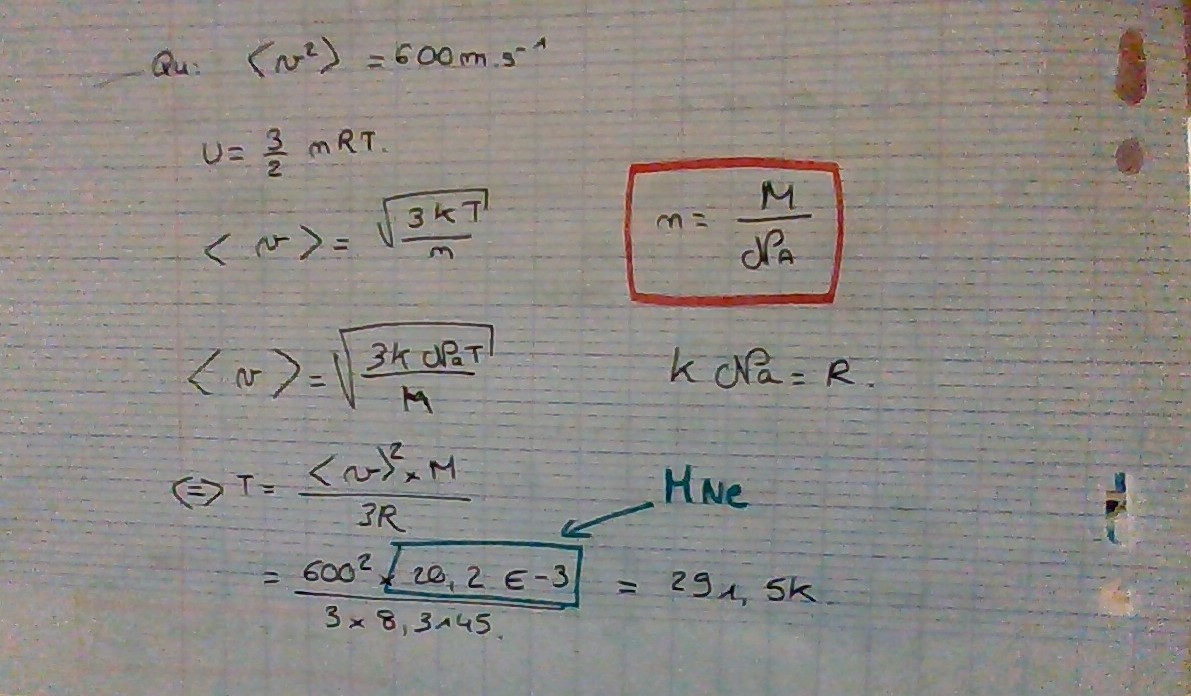 Qu: ⟨v²⟩ = 600 m.s⁻¹
U = 3/2 nRT.
⟨v⟩ = √(3kT/m)
m = M/𝒩A
⟨v⟩ = √(3k𝒩aT/M)
k𝒩a = R.
⟺ T = ⟨v⟩² × M / 3R
MNe
= 600² × 20,2 E-3 / 3 × 8,3145. = 291,5K